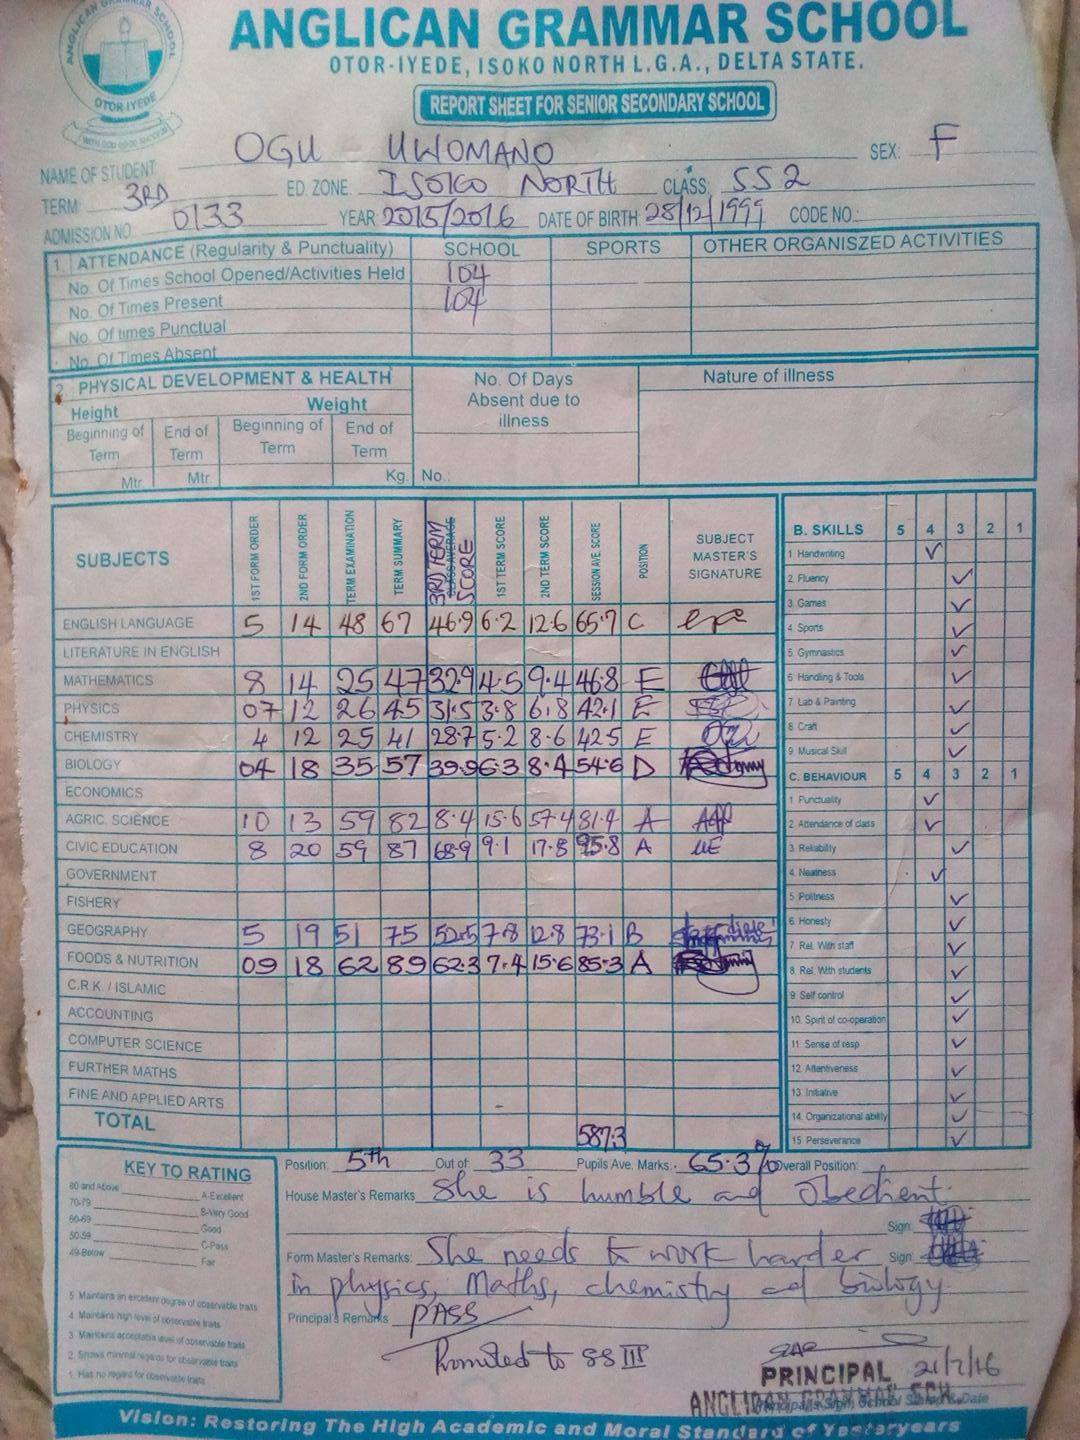 ANGLICAN GRAMMAR SCHOOL
OTOR-IYEDE
ANGLICAN GRAMMAR SCHOOL
OTOR-IYEDE, ISOKO NORTH L.G.A., DELTA STATE.
REPORT SHEET FOR SENIOR SECONDARY SCHOOL
NAME OF STUDENT: OGU UWOMANO SEX: F
TERM 3RD ED. ZONE ISOKO NORTH CLASS: SS2
ADMISSION NO. 0133 YEAR 2015/2016 DATE OF BIRTH 28/12/1999 CODE NO.:
1. ATTENDANCE (Regularity & Punctuality) SCHOOL SPORTS OTHER ORGANISZED ACTIVITIES
No. Of Times School Opened/Activities Held 104
No. Of Times Present 104
No. Of times Punctual
No. Of Times Absent
2. PHYSICAL DEVELOPMENT & HEALTH No. Of Days Absent due to illness Nature of illness
Height Weight
Beginning of Term End of Term Beginning of Term End of Term
Mtr. Mtr. Kg. No.:
SUBJECTS 1ST FORM ORDER 2ND FORM ORDER TERM EXAMINATION TERM SUMMARY 3RD TERM SCORE 1ST TERM SCORE 2ND TERM SCORE SESSION AVE. SCORE POSITION SUBJECT MASTER'S SIGNATURE
ENGLISH LANGUAGE 5 14 48 67 46.9 6.2 12.6 65.7 C
LITERATURE IN ENGLISH
MATHEMATICS 8 14 25 47 32.9 4.5 9.4 46.8 E
PHYSICS 07 12 26 45 31.5 3.8 6.8 42.1 E
CHEMISTRY 4 12 25 41 28.7 5.2 8.6 42.5 E
BIOLOGY 04 18 35 57 39.9 6.3 8.4 54.6 D
ECONOMICS
AGRIC. SCIENCE 10 13 59 82 8.4 15.6 57.4 81.4 A
CIVIC EDUCATION 8 20 59 87 68.9 9.1 17.8 95.8 A
GOVERNMENT
FISHERY
GEOGRAPHY 5 19 51 75 52.5 7.8 12.8 73.1 B
FOODS & NUTRITION 09 18 62 89 62.3 7.4 15.6 85.3 A
C.R.K. / ISLAMIC
ACCOUNTING
COMPUTER SCIENCE
FURTHER MATHS
FINE AND APPLIED ARTS
TOTAL 587.3
B. SKILLS 5 4 3 2 1
1 Handwriting
2. Fluency
3. Games
4. Sports
5. Gymnastics
6 Handling & Tools
7. Lab & Painting
8. Craft
9. Musical Skill
C. BEHAVIOUR 5 4 3 2 1
1 Punctuality
2. Attendance of class
3. Reliability
4. Neatness
5. Politness
6. Honesty
7. Rel. With staff
8. Rel. With students
9. Self control
10. Spirit of co-operation
11. Sense of resp
12. Attentiveness
13. Initiative
14. Organizational ability
15 Perseverance
KEY TO RATING
80 and Above A-Excellent
70-79 B-Very Good
60-69 Good
50-59 C-Pass
49-Below Fair
5. Maintains an excellent degree of observable traits
4. Maintains high level of observable traits
3. Maintains acceptable level of observable traits
2. Shows minimal regards for observable traits
1. Has no regard for observable traits
Position: 5th Out of 33 Pupils Ave. Marks.: 65.3% Overall Position:
House Master's Remarks She is humble and obedient.
Sign:
Form Master's Remarks: She needs to work harder Sign:
in physics, Maths, chemistry and biology.
Principal's Remarks PASS
Promoted to SS III
PRINCIPAL 21/7/16
ANGLICAN GRAMMAR SCH
Vision: Restoring The High Academic and Moral Standard of Yesteryears